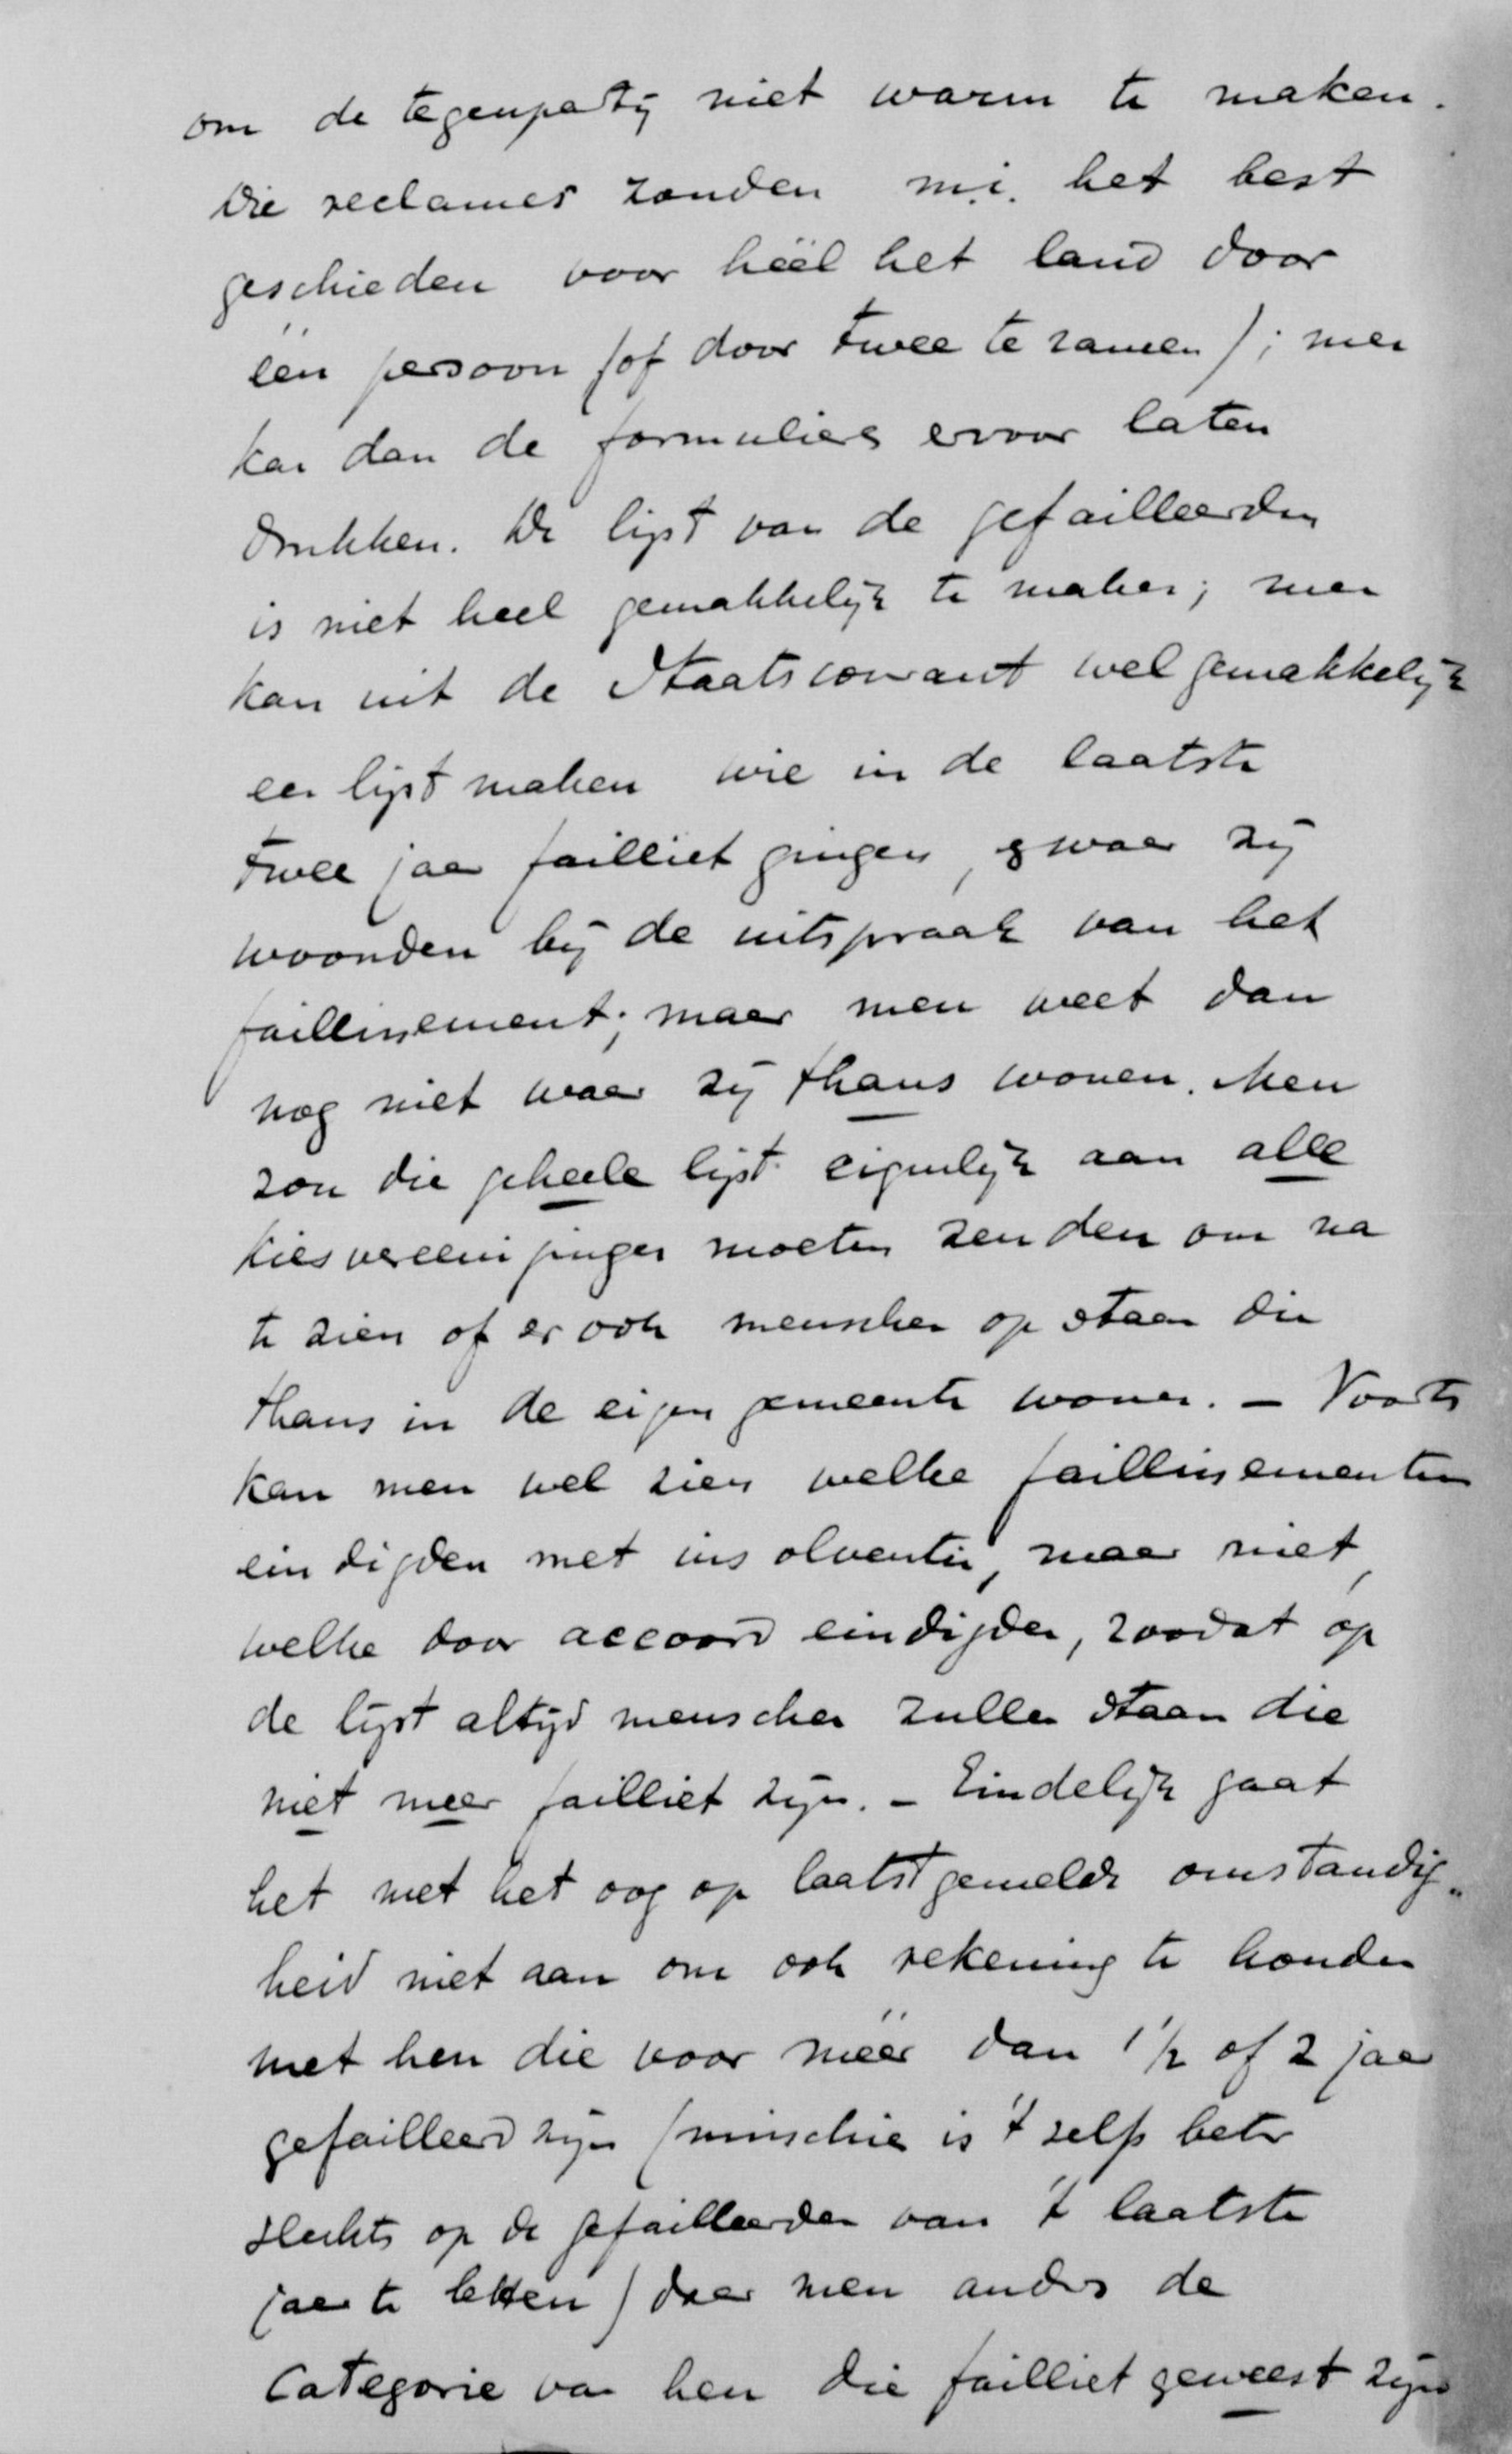 om de tegenpartij niet warm te maken.
Die reclames zouden m.i. het best
geschieden voor héél het land door
één persoon (of door twee te zamen); men
kan dan de formuliers ervoor laten
drukken. De lijst van de gefailleerden
is niet heel gemakkelijk te maken; men
kan uit de Staatscourant wel gemakkelijk
een lijst maken wie in de laatste
twee jaar failliet gingen, & waar zij
woonden bij de uitspraak van het
faillissement; maar men weet dan
nog niet waar zij thans wonen. Men
zou die geheele lijst eigenlijk aan alle
kiesvereenigingen moeten zenden om na
te zien of er ook menschen op staan die
thans in de eigen gemeente wonen. – Voorts
kan men wel zien welke faillissementen
eindigden met insolventie, maar niet,
welke door accoord eindigden, zoodat op
de lijst altijd menschen zullen staan die
niet meer failliet zijn. – Eindelijk gaat
het met het oog op laatstgemelde omstandig-
heid niet aan om ook rekening te houden
met hen die voor méér dan 1½ of 2 jaar
gefailleerd zijn (misschien is 't zelfs beter
slechts op de gefailleerden van 't laatste
jaar te letten) daar men anders de
Categorie van hen die failliet geweest zijn